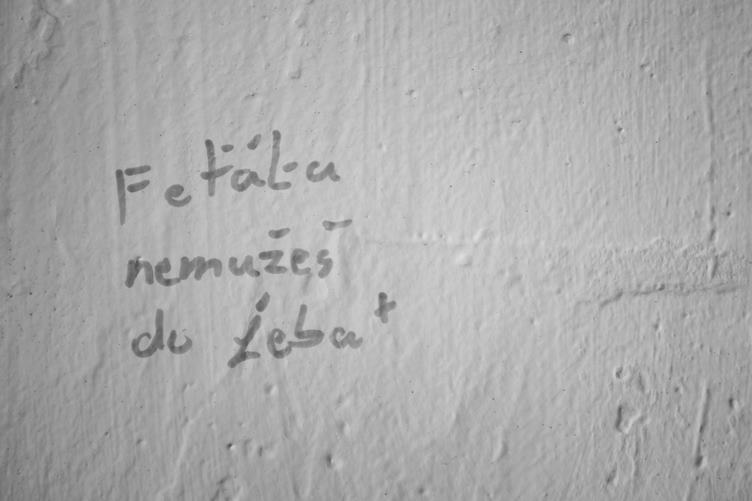 Feťáka
nemužeš
do jebat